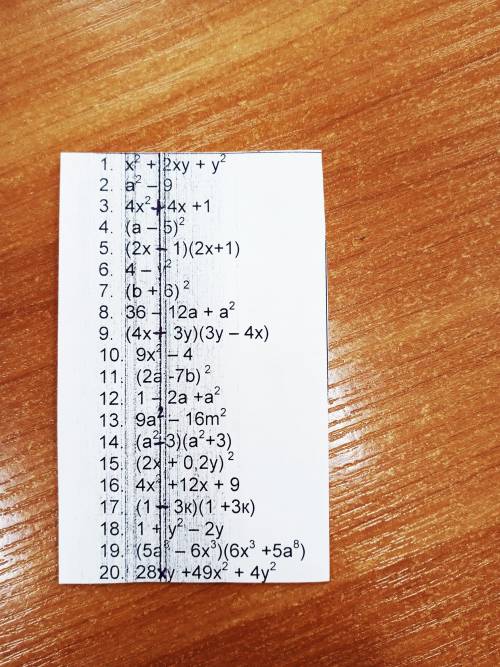 1. x² + 2xy + y²
2. a² – 9
3. 4x² + 4x +1
4. (a – 5)²
5. (2x – 1)(2x+1)
6. 4 – y²
7. (b + 6)²
8. 36 – 12a + a²
9. (4x + 3y)(3y – 4x)
10. 9x² – 4
11. (2a -7b)²
12. 1 – 2a +a²
13. 9a² – 16m²
14. (a²–3)(a²+3)
15. (2x + 0,2y)²
16. 4x² +12x + 9
17. (1 – 3к)(1 +3к)
18. 1 + y² – 2y
19. (5a⁸ – 6x³)(6x³ +5a⁸)
20. 28xy +49x² + 4y²